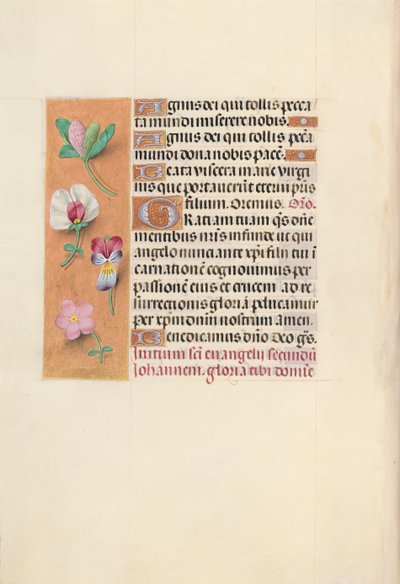 Agnus dei qui tollis pecca
ta mundi miserere nobis.
Agnus dei qui tollis pecca
mundi dona nobis pacē.
Beata viscera marie virgi
nis que portaverūt eterni pr̄is
filium. Oremus. Or̄o.
Gratiam tuam qs̄ dn̄e
mentibus nr̄is infunde ut qui
angelo nunciante xp̄i filii tui i
carnationē cognovimus per
passionē eius et crucem ad re
surrectionis gloriā perducamur
per xp̄m dn̄m nostrum amen.
Benedicamus dn̄o Deo gr̄s.
Initium sc̄i evangelii secundū
Johannem. gloria tibi domine